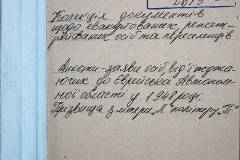 Колекція документів
щодо евакуйованих, репат-
рійованих осіб та переселенців
Анкети-заяви осіб, від'їжджа-
ючих до Єврейської Автоном-
ної області у 1948 році.
Прізвища з літери "Л" по літеру "П"